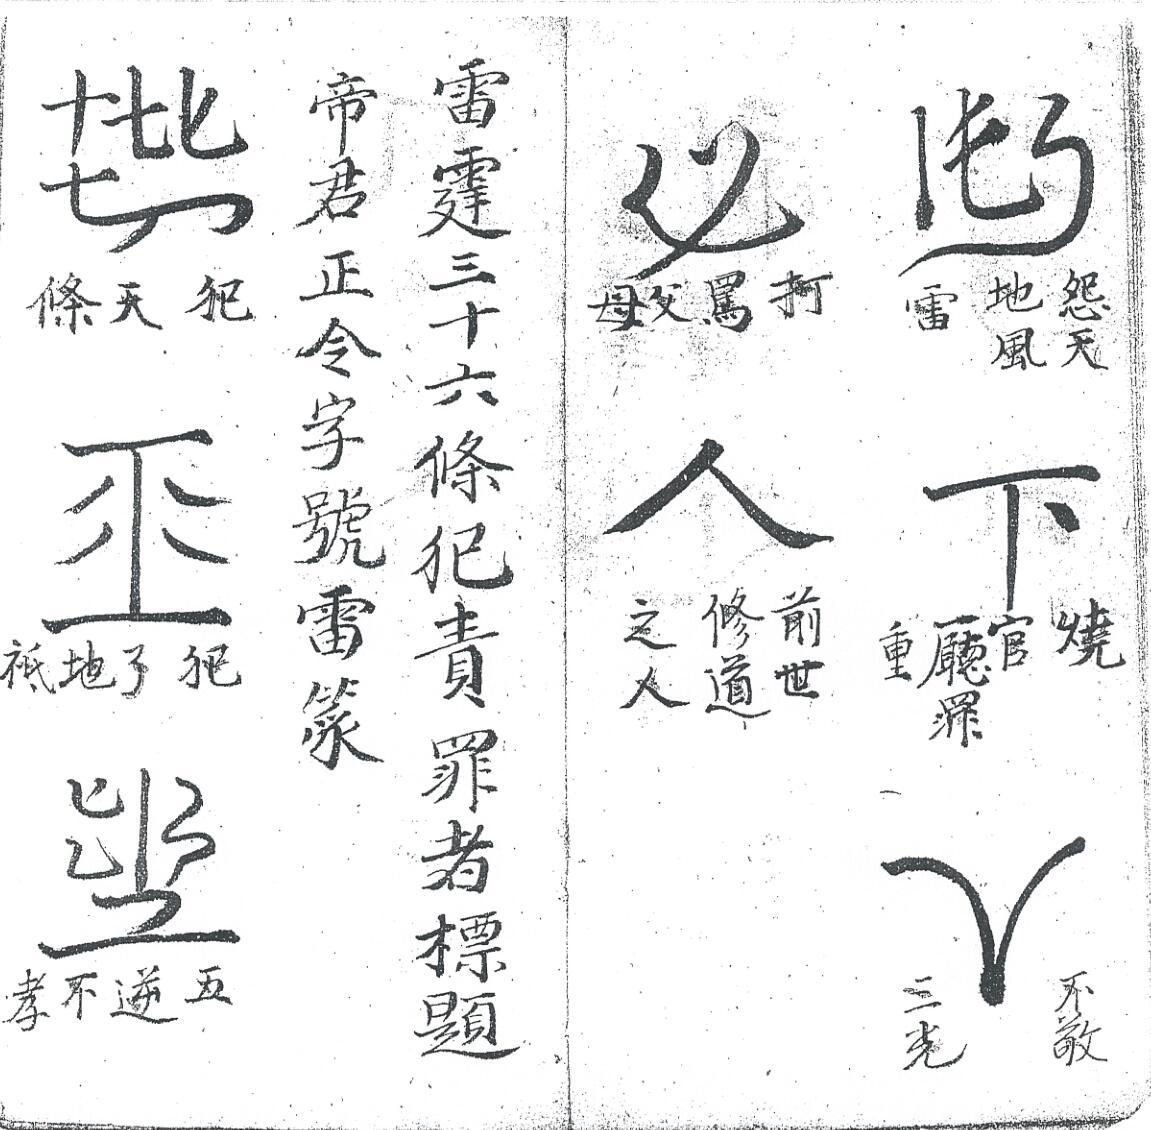 怨天地風雷
燒官廳罪重
不敬三光
抲罵父母
前世修道之人
雷霆三十六條犯責罪者標題
帝君正令字號雷篆
犯天條
犯了地祇
五逆不孝